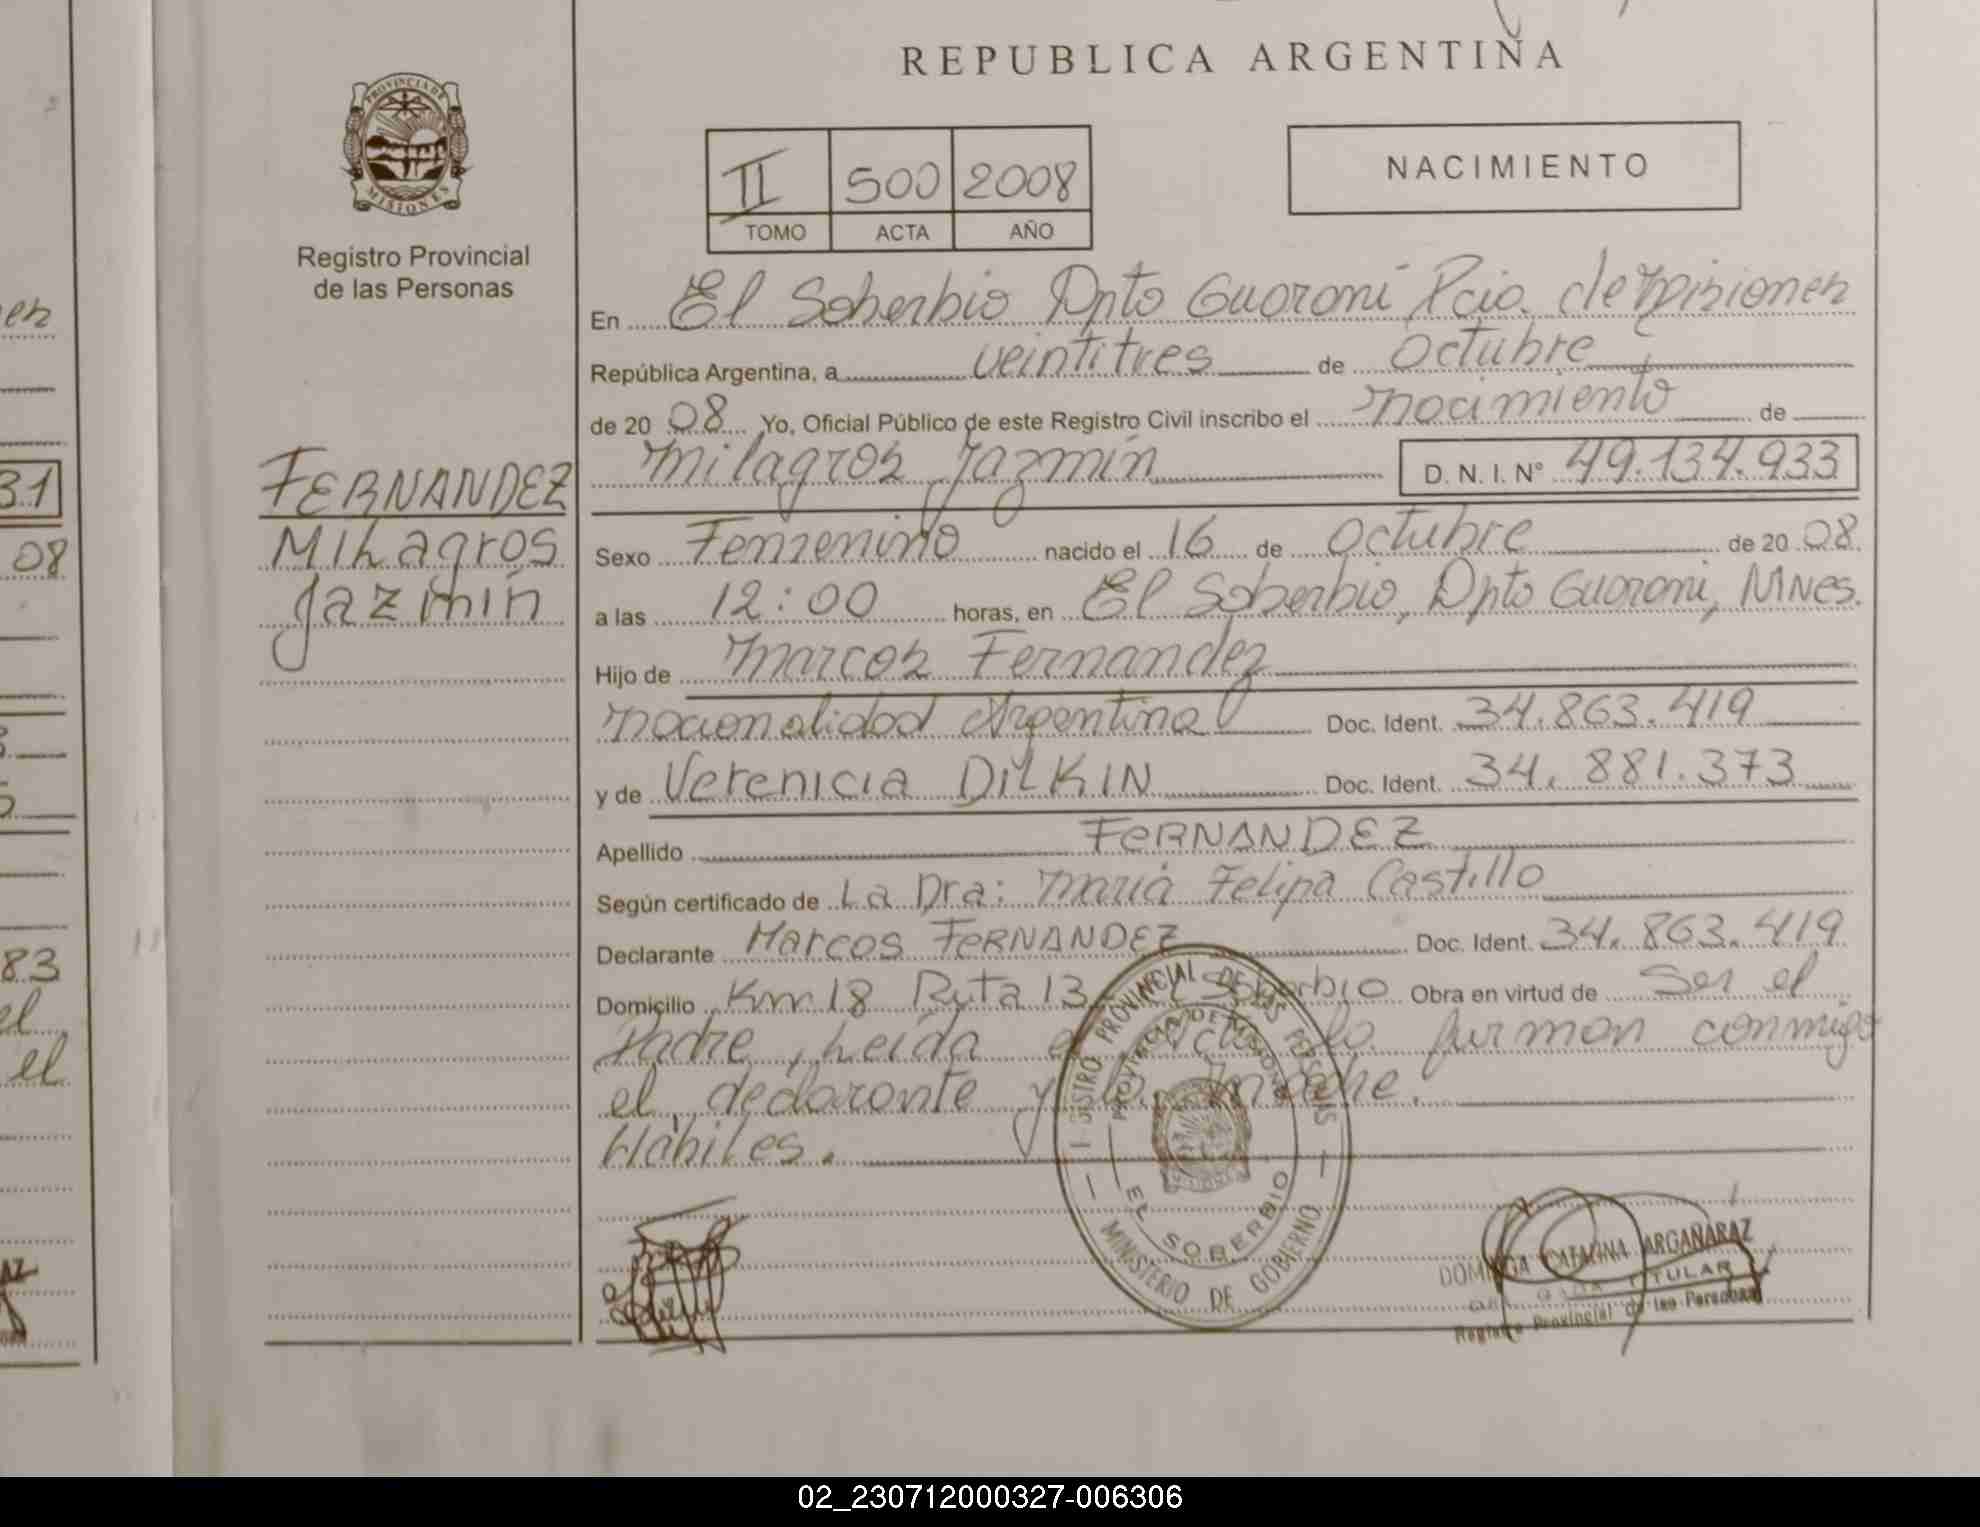 REPUBLICA ARGENTINA
PROVINCIA DE
MISIONES
Registro Provincial
de las Personas
II 500 2008
TOMO ACTA AÑO
NACIMIENTO
En El Soberbio Dpto Guaraní Pcia. de Misiones
República Argentina, a veintitres de Octubre
de 2008 Yo, Oficial Público de este Registro Civil inscribo el nacimiento de
Milagros Jazmín D. N. I. N° 49.134.933
FERNANDEZ
Milagros
Jazmín
Sexo Femenino nacido el 16 de Octubre de 2008
a las 12:00 horas, en El Soberbio, Dpto Guaraní, MNES.
Hijo de Marcos Fernandez
nacionalidad Argentina Doc. Ident. 34.863.419
y de Verenicia DILKIN Doc. Ident. 34.881.373
Apellido FERNANDEZ
Según certificado de La Dra: María Felipa Castillo
Declarante Marcos FERNANDEZ Doc. Ident. 34.863.419
Domicilio Km 18 Ruta 13 Soberbio Obra en virtud de Ser el
Padre, Leída el acta la firman conmigo
el declarante y la madre.
Hábiles.
PROVINCIAL DE LAS PERSONAS
PROVINCIA DE MISIONES
EL SOBERBIO
MINISTERIO DE GOBIERNO
CATALINA ARGAÑARAZ
TITULAR
Registro Provincial de las Personas
en
31
08
83
el
el
AZ
02_230712000327-006306